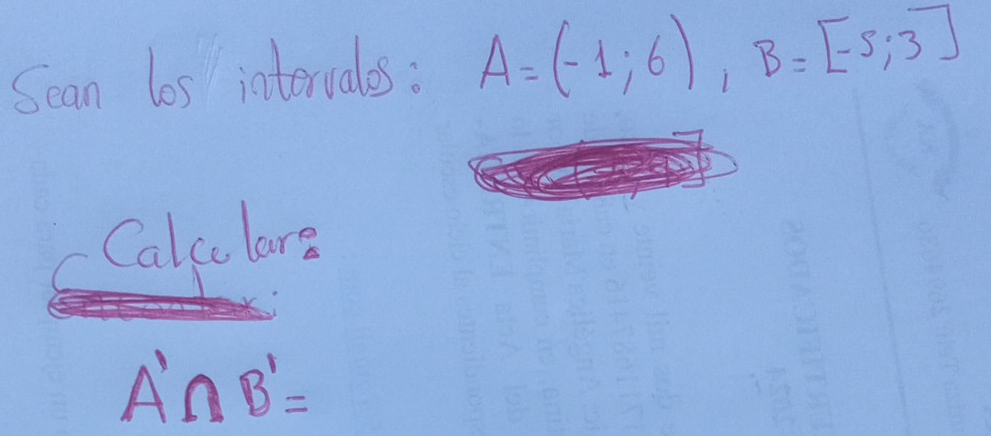 Sean los intervalos: A=(-1;6), B=[-5;3]
Calcular:
A'∩B'=